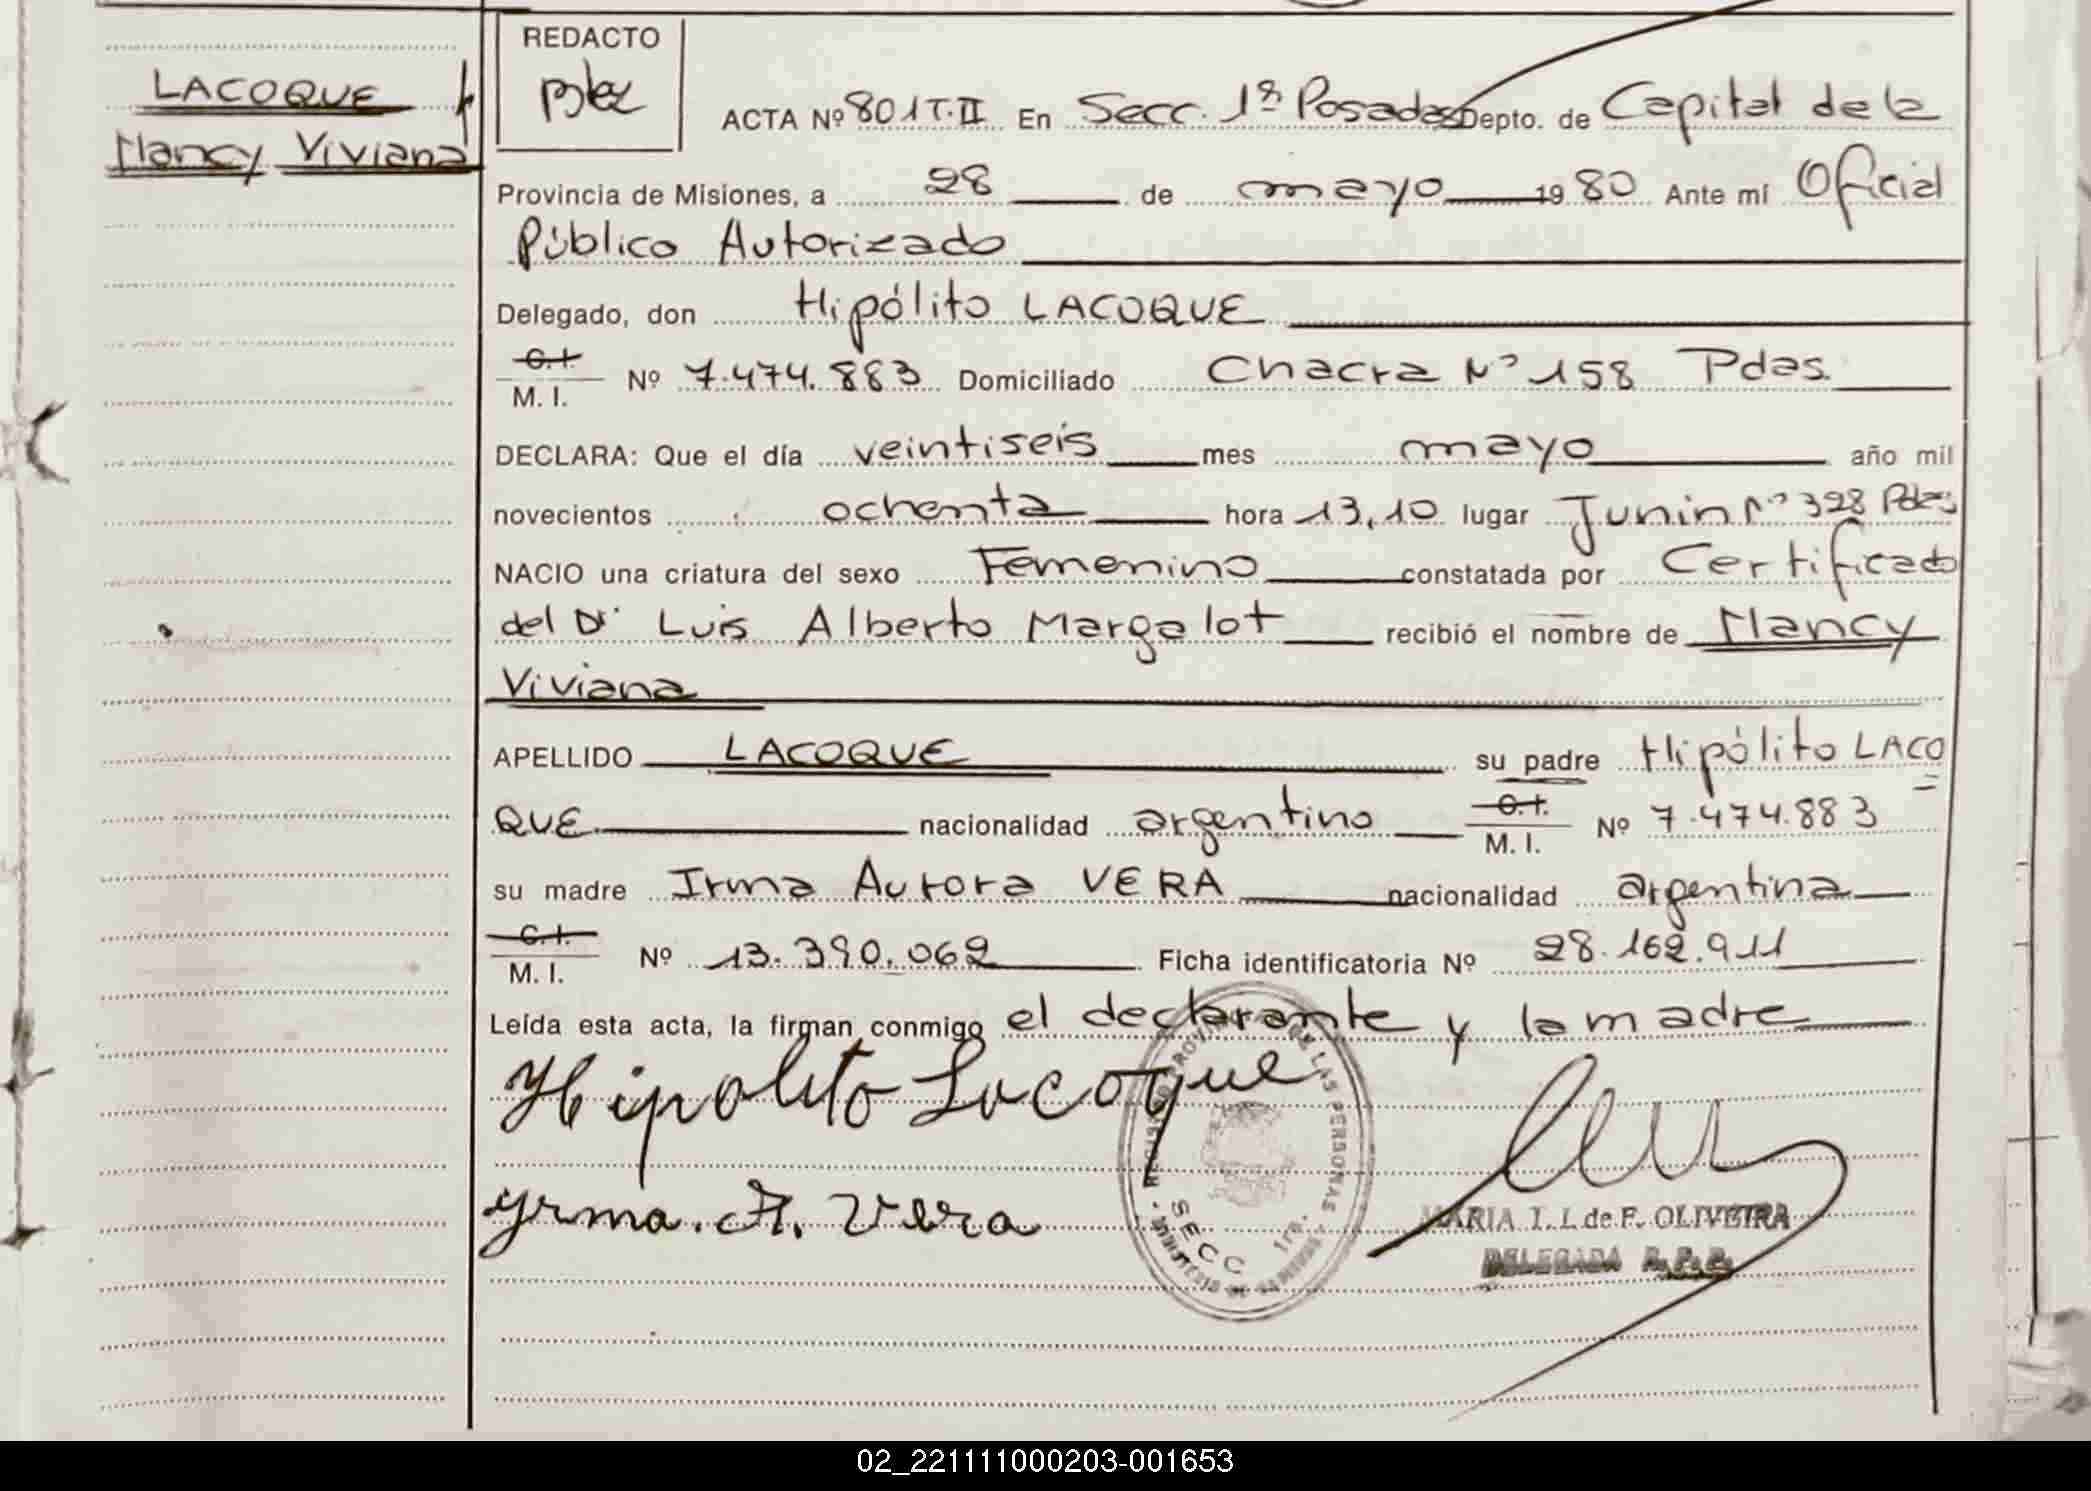 LACOQUE
Nancy Viviana
REDACTO
ACTA Nº 801 T.II En Secc. 1ª Posadas Depto. de Capital de la
Provincia de Misiones, a 28 de mayo 1980 Ante mí Oficial
Público Autorizado
Delegado, don Hipólito LACOQUE
C.I.
M. I. Nº 7.474.883 Domiciliado Chacra Nº 158 Pdas.
DECLARA: Que el día veintiseis mes mayo año mil
novecientos ochenta hora 13,10 lugar Junin Nº 328 Pdas
NACIO una criatura del sexo Femenino constatada por Certificado
del Dr Luis Alberto Margalot recibió el nombre de Nancy
Viviana
APELLIDO LACOQUE su padre Hipólito LACO
QUE nacionalidad argentino C.I.
M. I. Nº 7.474.883
su madre Irma Aurora VERA nacionalidad argentina
C.I.
M. I. Nº 13.390.062 Ficha identificatoria Nº 28.162.911
Leída esta acta, la firman conmigo el declarante y la madre
Hipolito Lacoque
Yrma. A. Vera
SECC 1ra.
MARIA T. I. de F. OLIVEIRA
DELEGADA R.P.P.
02_221111000203-001653